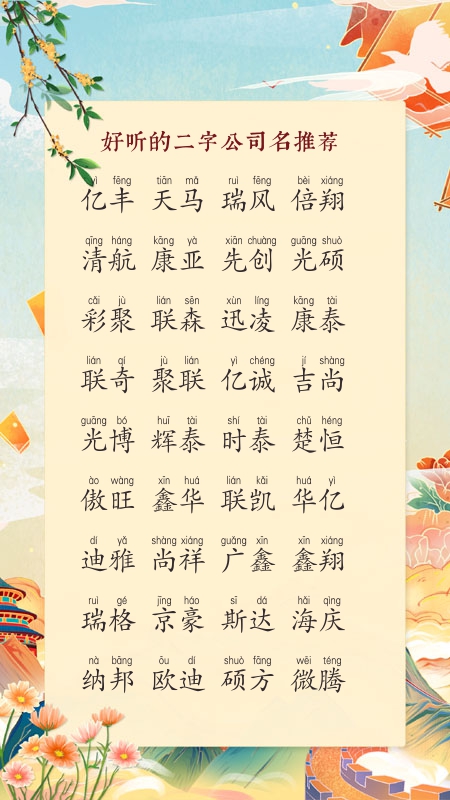 好听的二字公司名推荐
yì fēng tiān mǎ ruì fēng bèi xiáng
亿丰 天马 瑞风 倍翔
qīng háng kāng yà xiān chuàng guāng shuò
清航 康亚 先创 光硕
cǎi jù lián sēn xùn líng kāng tài
彩聚 联森 迅凌 康泰
lián qí jù lián yì chéng jí shàng
联奇 聚联 亿诚 吉尚
guāng bó huī tài shí tài chǔ héng
光博 辉泰 时泰 楚恒
ào wàng xīn huá lián kǎi huá yì
傲旺 鑫华 联凯 华亿
dí yǎ shàng xiáng guǎng xīn xīn xiáng
迪雅 尚祥 广鑫 鑫翔
ruì gé jīng háo sī dá hǎi qìng
瑞格 京豪 斯达 海庆
nà bāng ōu dí shuò fāng wēi téng
纳邦 欧迪 硕方 微腾